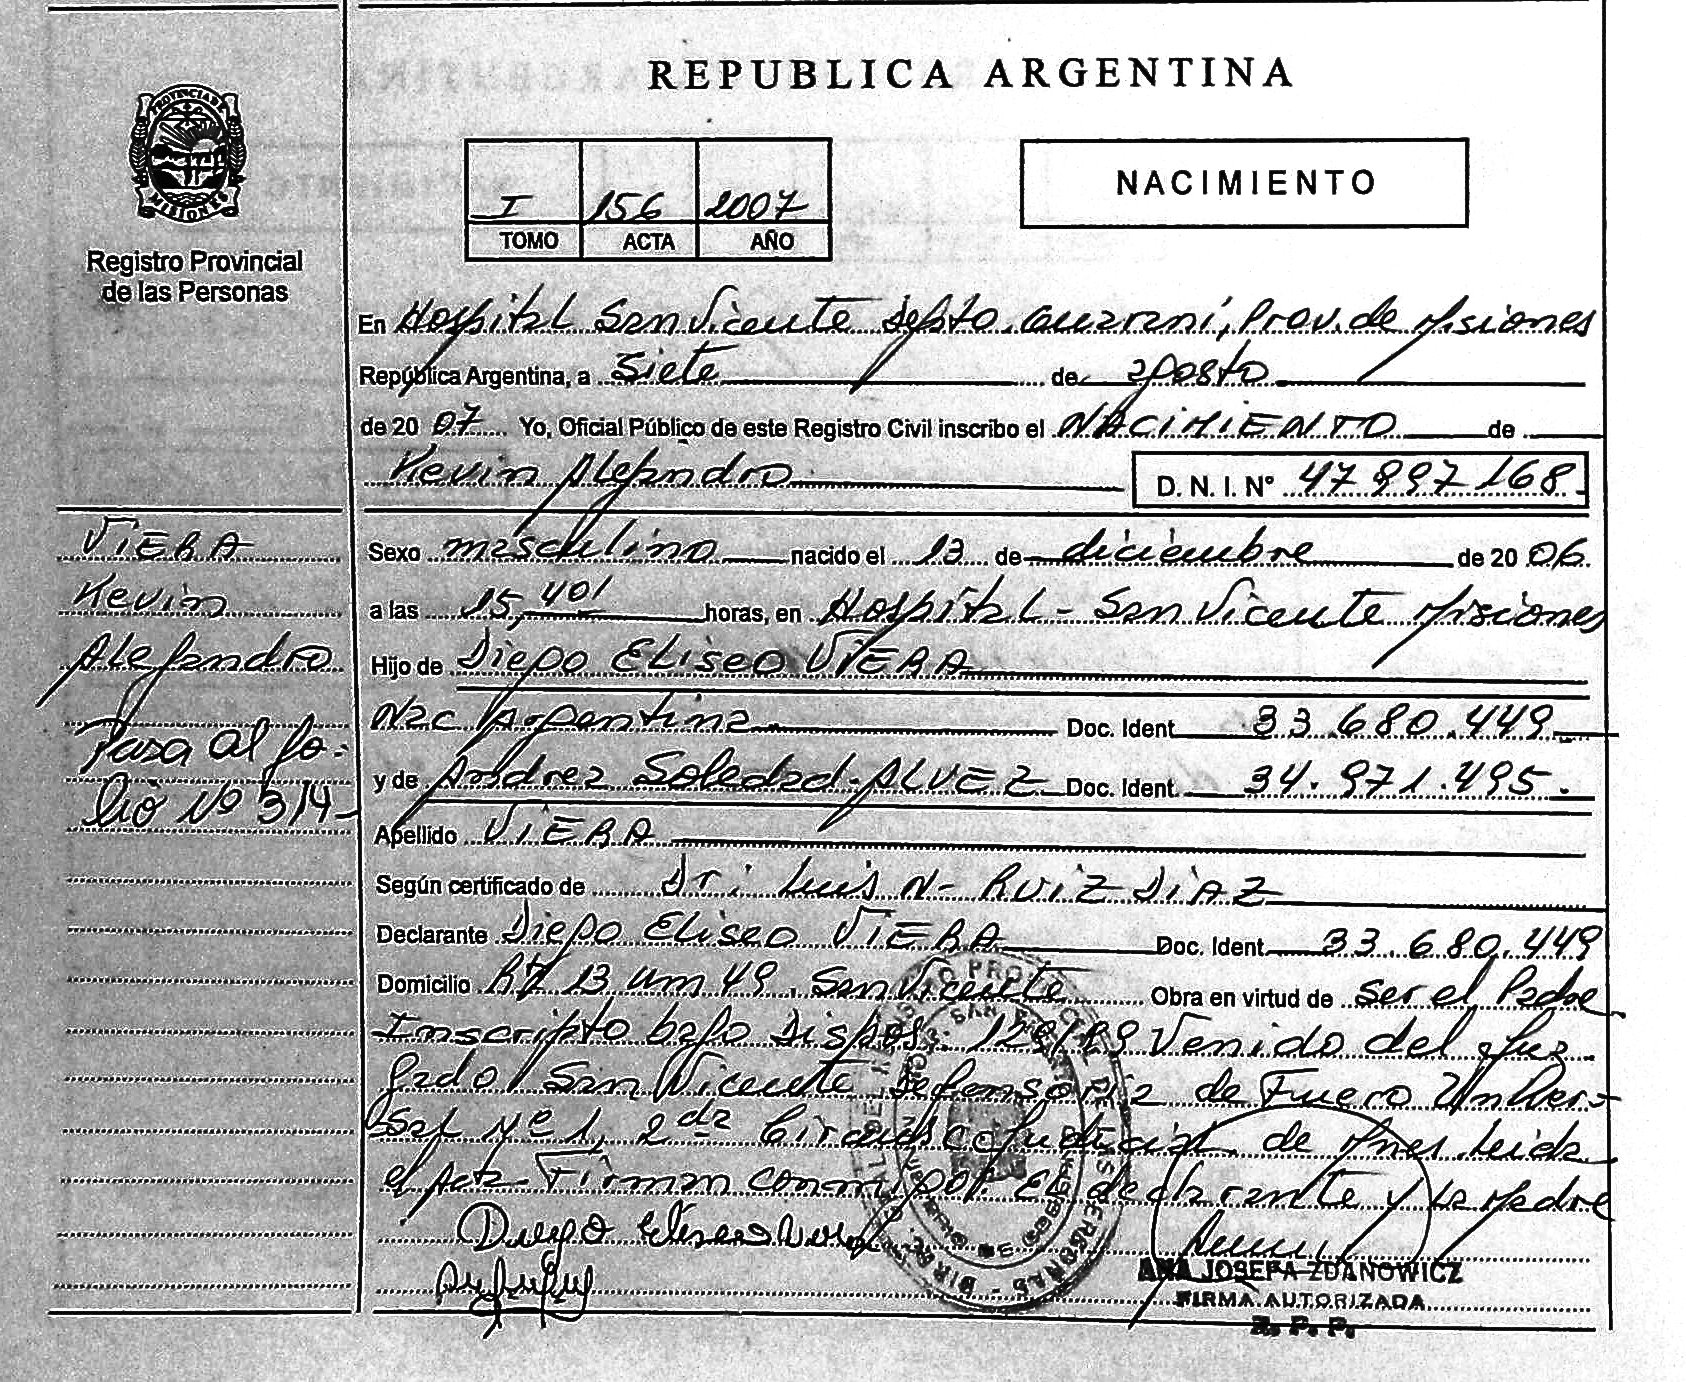 REPUBLICA ARGENTINA
PROVINCIA DE
MISIONES
Registro Provincial
de las Personas
I 156 2007
TOMO ACTA AÑO
NACIMIENTO
En Hospital San Vicente Depto. Guaraní, Prov. de Misiones
República Argentina, a Siete de agosto
de 20 07 Yo, Oficial Público de este Registro Civil inscribo el NACIMIENTO de
Kevin Alejandro D. N. I. Nº 47 997 168.
VIERA
Kevin
Alejandro
Pasa al fo-
lio Nº 314-
Sexo masculino nacido el 13 de diciembre de 20 06.
a las 15,40' horas, en Hospital - San Vicente Misiones
Hijo de Diego Eliseo VIERA
Nac Argentina. Doc. Ident. 33.680.449
y de Andrea Soledad ALVEZ Doc. Ident. 34.971.495.
Apellido VIERA
Según certificado de Dr: Luis N- RUIZ DIAZ
Declarante Diego Eliseo VIERA Doc. Ident. 33.680.449
Domicilio 13 km 49. San Vicente Obra en virtud de ser el Padre
Inscripto bajo Dispos. Venido del Juz-
gado San Vicente Defensoría de Fuero Univer-
sal Nº 1, 2da Circunds. Judicial de Mnes. Leida
el Acta Firman conmigo. El declarante y la Madre
Diego Eliseo
ANA JOSEFA ZDANOWICZ
FIRMA AUTORIZADA
R. P. P.